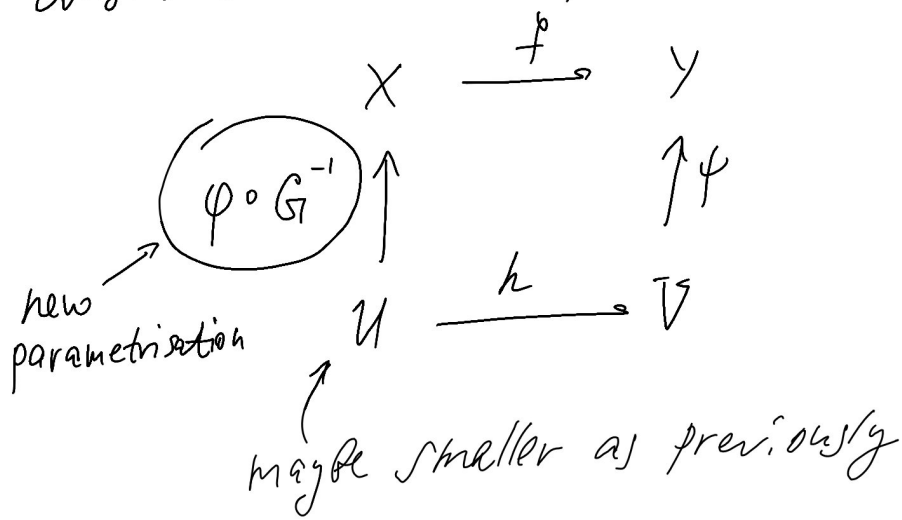 f
X → Y
φ ∘ G⁻¹ ↑ ↑ ψ
h
new
parametrisation
U → V
maybe smaller as previously